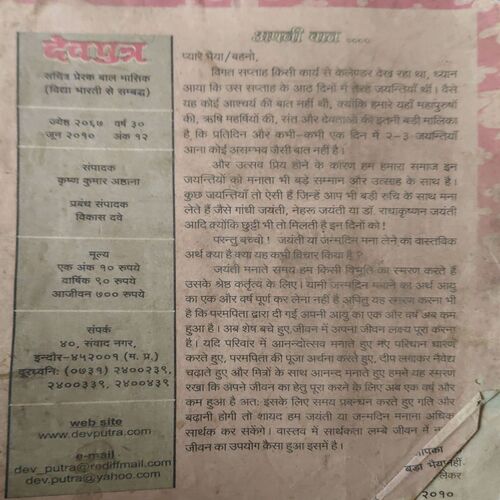 देवपुत्र
सचित्र प्रेरक बाल मासिक
(विद्या भारती से सम्बद्ध)
ज्येष्ठ २०६७ वर्ष ३०
जून २०१० अंक १२
संपादक
कृष्ण कुमार अष्ठाना
प्रबंध संपादक
विकास दवे
मूल्य
एक अंक १० रुपये
वार्षिक ९० रुपये
आजीवन ७०० रुपये
संपर्क
४०, संवाद नगर,
इन्दौर-४५२००१ (म. प्र.)
दूरध्वनि: (०७३१) २४००२३९,
२४००३३९, २४००४३९
web site
www.devputra.com
e-mail
dev_putra@rediffmail.com
dev.putra@yahoo.com
अपनी बात ....
प्यारे भैया/बहनो,
विगत सप्ताह किसी कार्य से केलेण्डर देख रहा था, ध्यान
आया कि उस सप्ताह के आठ दिनों में तेरह जयन्तियाँ थीं। वैसे
यह कोई आश्चर्य की बात नहीं थी, क्योंकि हमारे यहाँ महापुरुषों
की, ऋषि महर्षियों की, संत और देवताओं की इतनी बड़ी मालिका
है, कि प्रतिदिन और कभी-कभी एक दिन में २-३ जयन्तियाँ
आना कोई असम्भव जैसी बात नहीं है।
और उत्सव प्रिय होने के कारण हम हमारा समाज इन
जयन्तियों को मनाता भी बड़े सम्मान और उत्साह के साथ है।
कुछ जयन्तियाँ तो ऐसी हैं जिन्हें आप भी बड़ी रुचि के साथ मना
लेते हैं जैसे गांधी जयंती, नेहरू जयंती या डॉ. राधाकृष्णन जयंती
आदि क्योंकि छुट्टी भी तो मिलती है इन दिनों को!
परन्तु बच्चो! जयंती या जन्मदिन मना लेने का वास्तविक
अर्थ क्या है क्या यह कभी विचार किया है?
जयंती मनाते समय हम किसी विभूति का स्मरण करते हैं
उसके श्रेष्ठ कर्तृत्व के लिए। यानी जन्मदिन मनाने का अर्थ आयु
का एक और वर्ष पूर्ण कर लेना नहीं है अपितु यह स्मरण करना भी
है कि परमपिता द्वारा दी गई अपनी आयु का एक और वर्ष अब कम
हुआ है। अब शेष बचे हुए जीवन में अपना जीवन लक्ष्य पूरा करना
है। यदि परिवार में आनन्दोत्सव मनाते हुए नए परिधान धारण
करते हुए, परमपिता की पूजा अर्चना करते हुए, दीप लगाकर नैवेद्य
चढ़ाते हुए और मित्रों के साथ आनन्द मनाते हुए हमने यह स्मरण
रखा कि अपने जीवन का हेतु पूरा करने के लिए अब एक वर्ष और
कम हुआ है अत: इसके लिए समय प्रबन्धन करते हुए गति और
बढ़ानी होगी तो शायद हम जयंती या जन्मदिन मनाना अधिक
सार्थक कर सकेंगे। वास्तव में सार्थकता लम्बे जीवन में नहीं
जीवन का उपयोग कैसा हुआ इसमें है।
आपका
बड़ा भैया
लेकर
२०१०